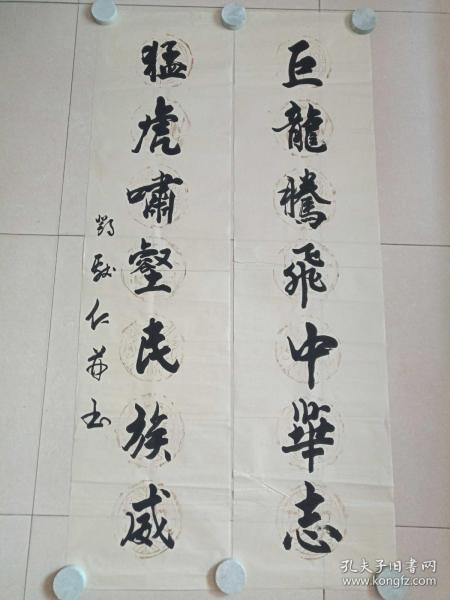 巨龍騰飛中華志
猛虎嘯壑民族威
孔夫子旧书网
www.kongfz.com